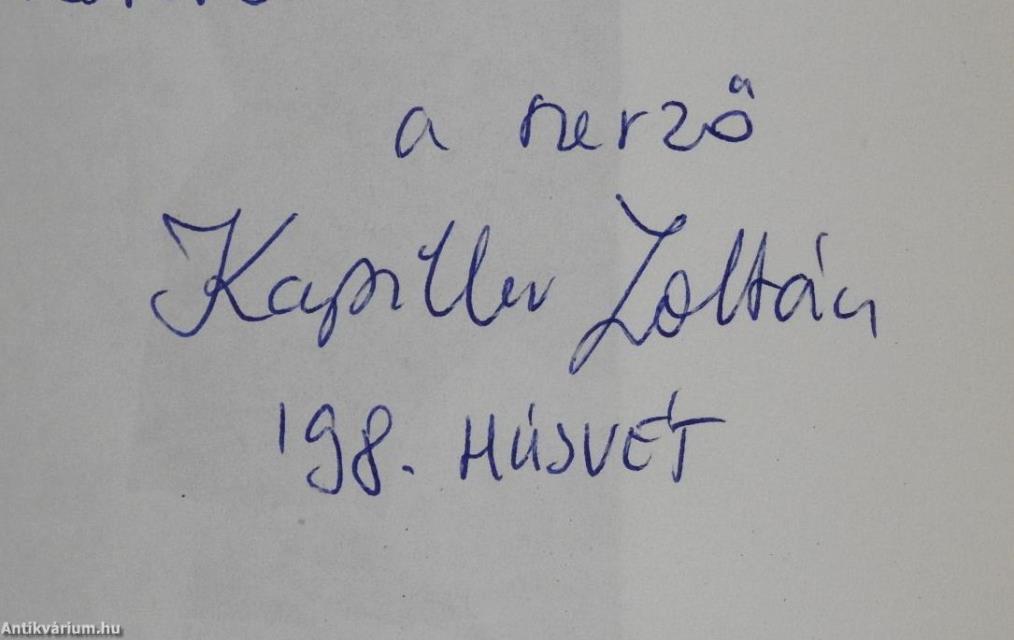 a szerző
Kapiller Zoltán
'98. HÚSVÉT
Antikvárium.hu